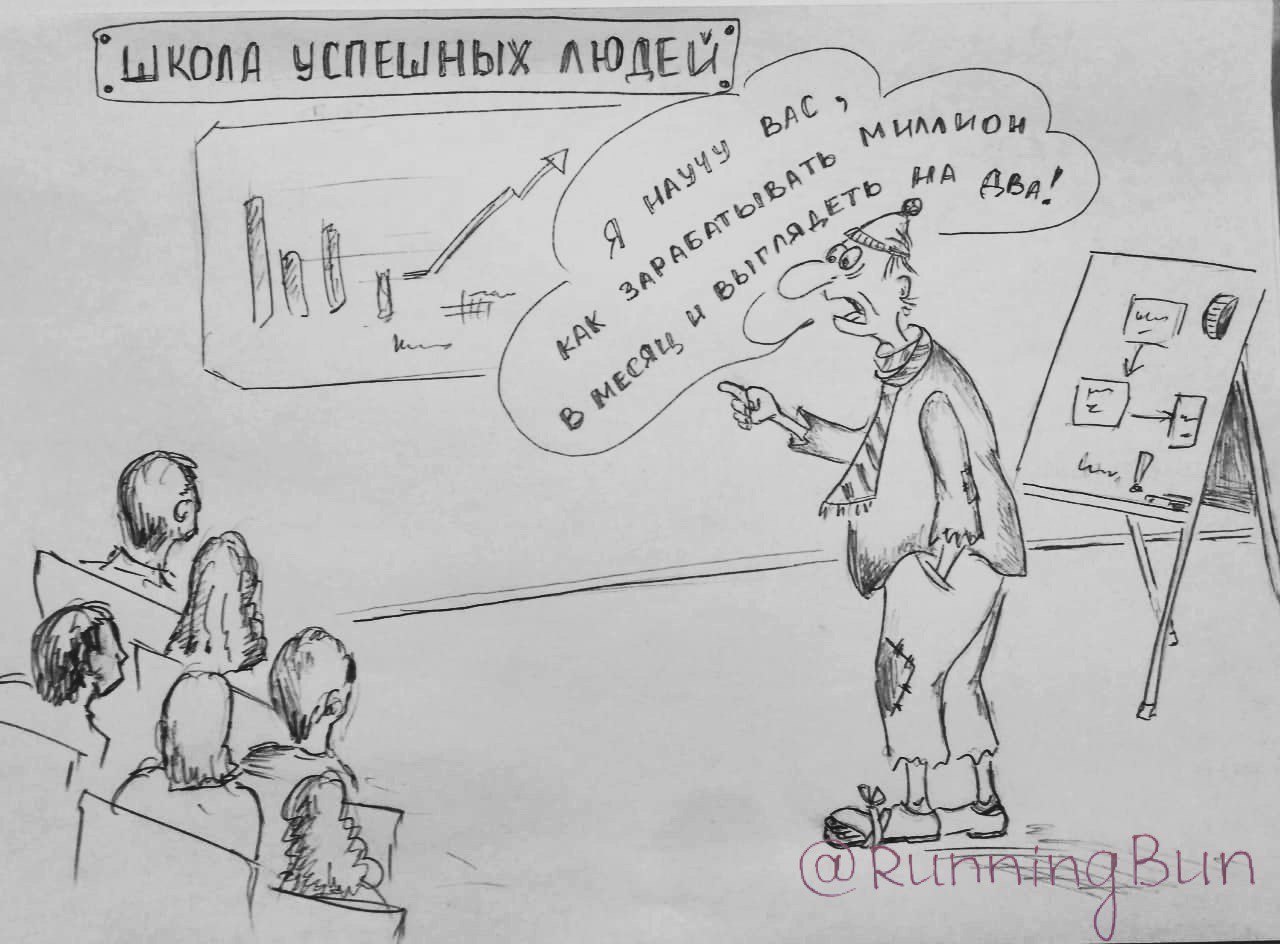 ШКОЛА УСПЕШНЫХ ЛЮДЕЙ
Я НАУЧУ ВАС,
КАК ЗАРАБАТЫВАТЬ МИЛЛИОН
В МЕСЯЦ И ВЫГЛЯДЕТЬ НА ДВА!
@RunningBun